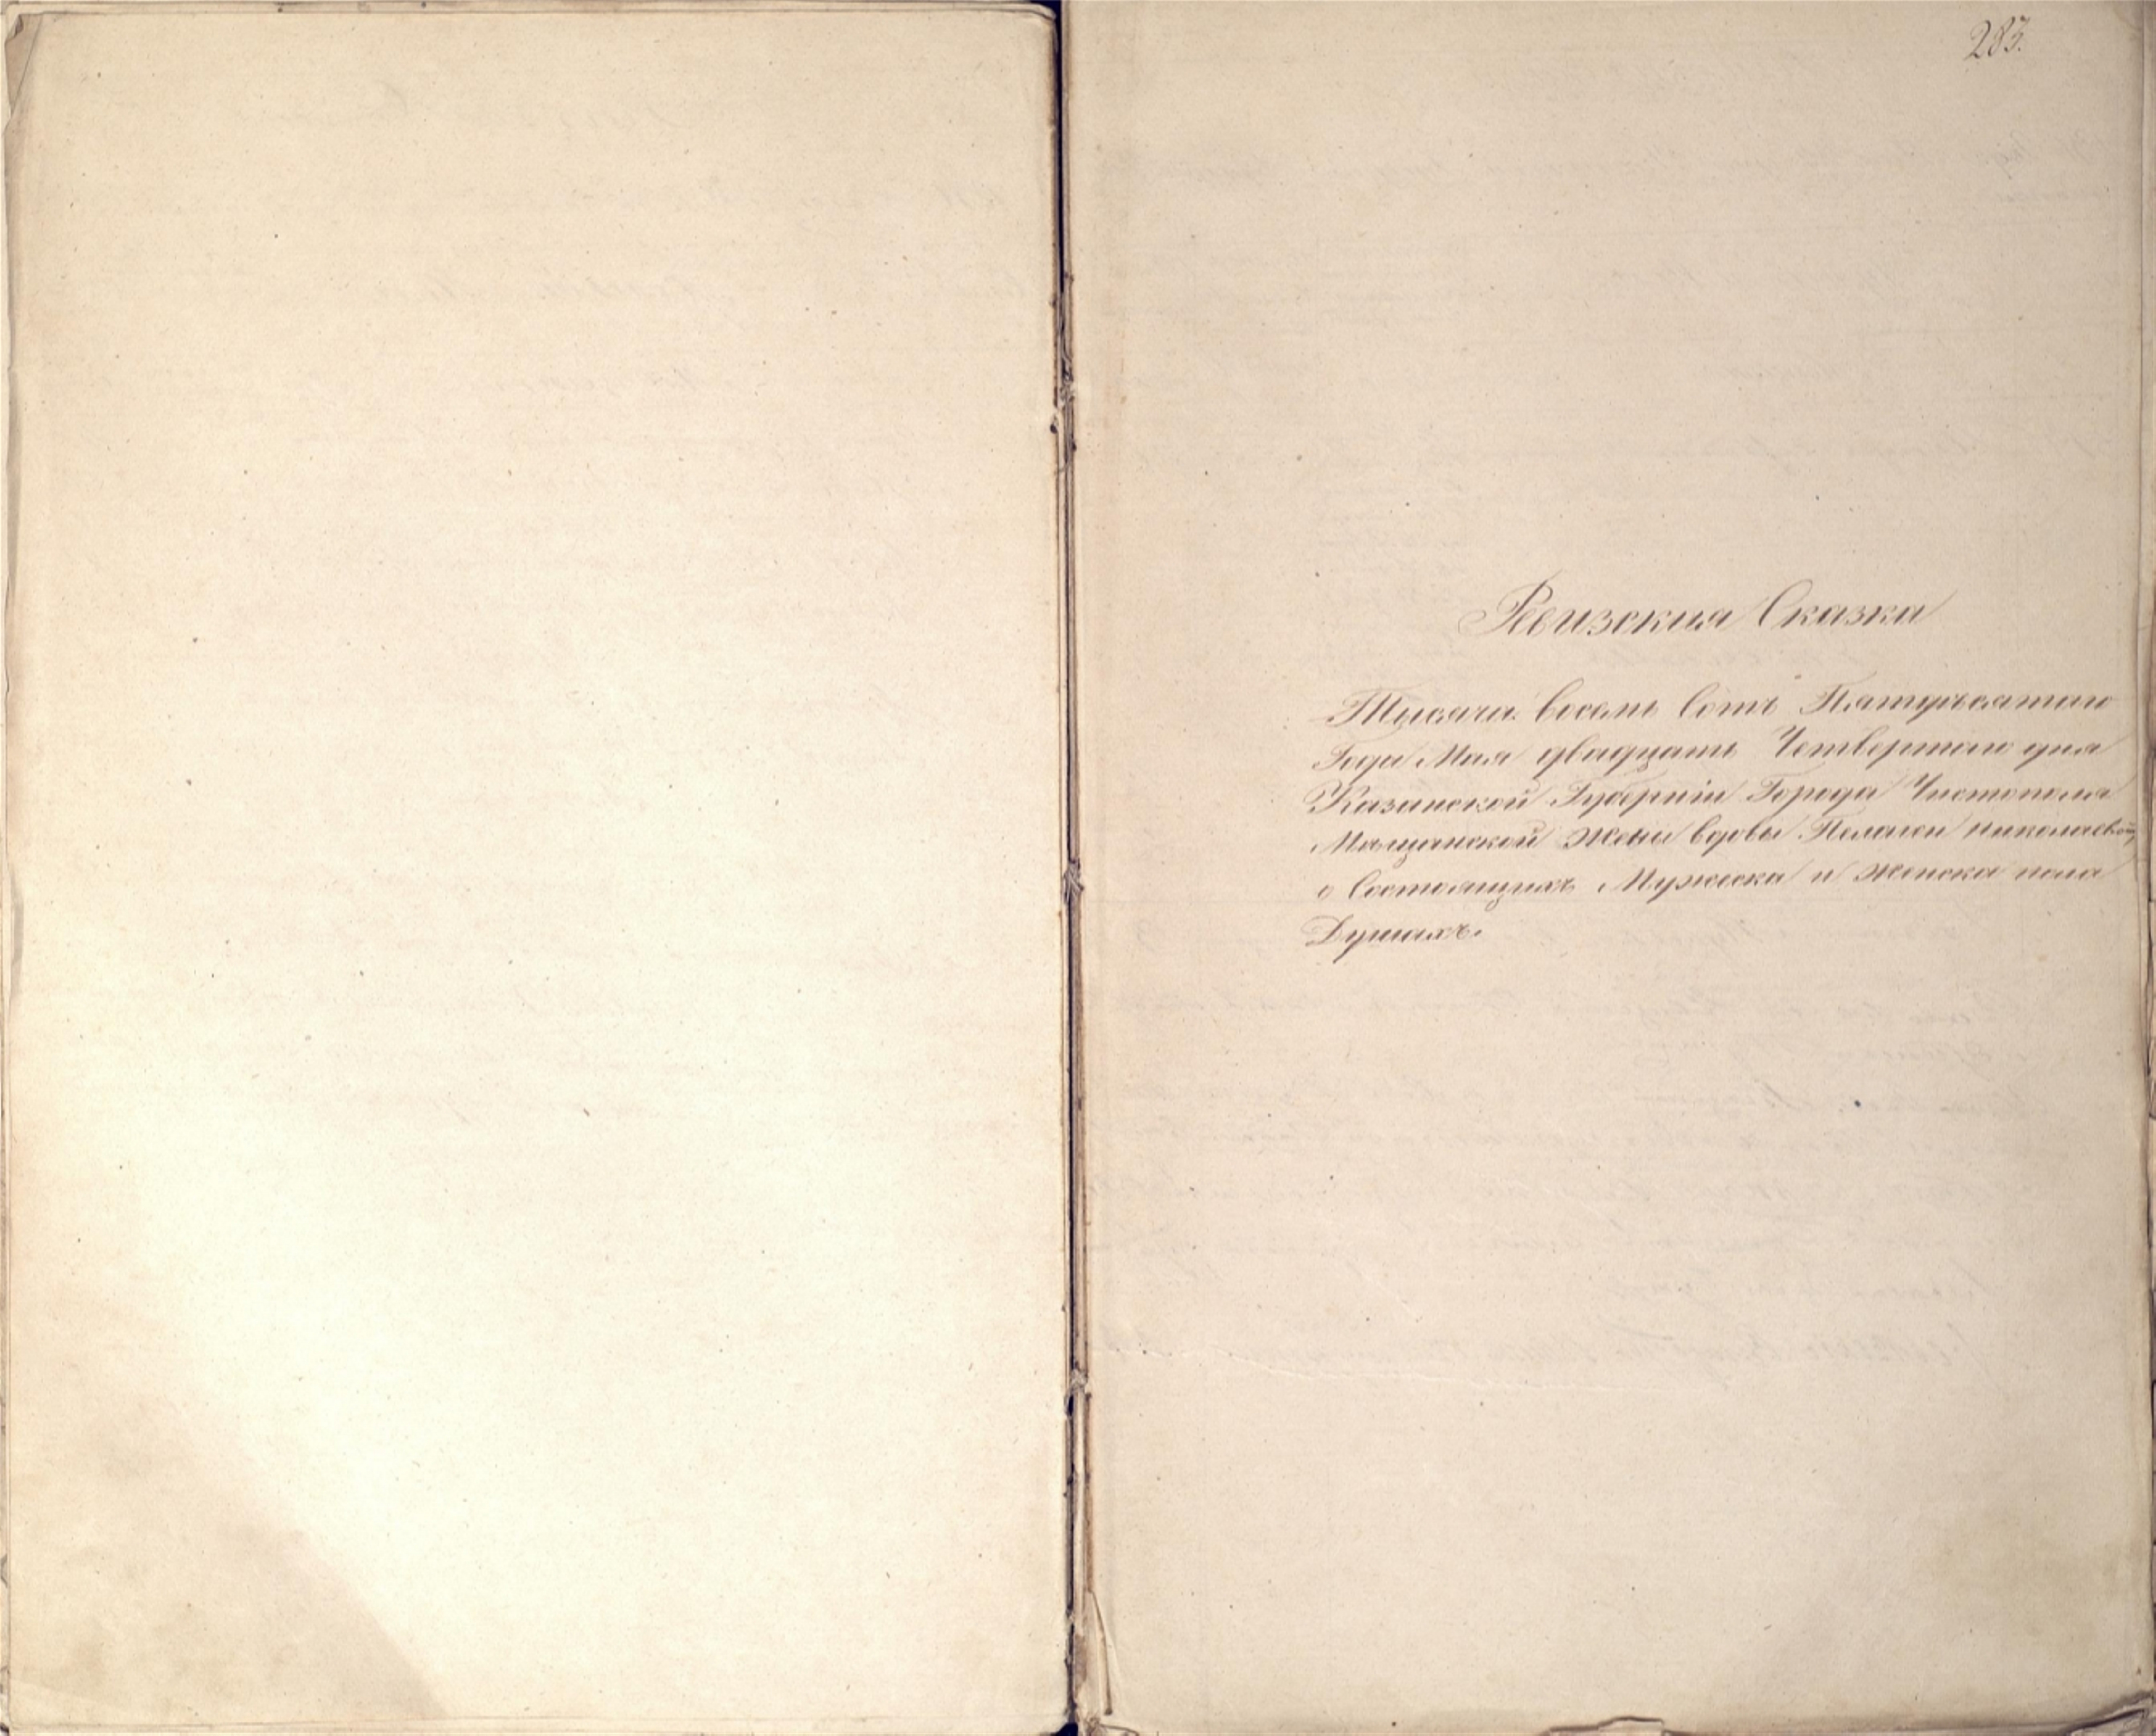 283.
Ревизския Сказка
Тысяча восемь сотъ Пятдесятаго
Года Мая двадцать Четвертаго дня
Казанской Губерніи Города Чистополя
Мѣщанской Жены вдовы Пелагеи Николаевой,
о Состоящихъ Мужеска и Женска пола
Душахъ.